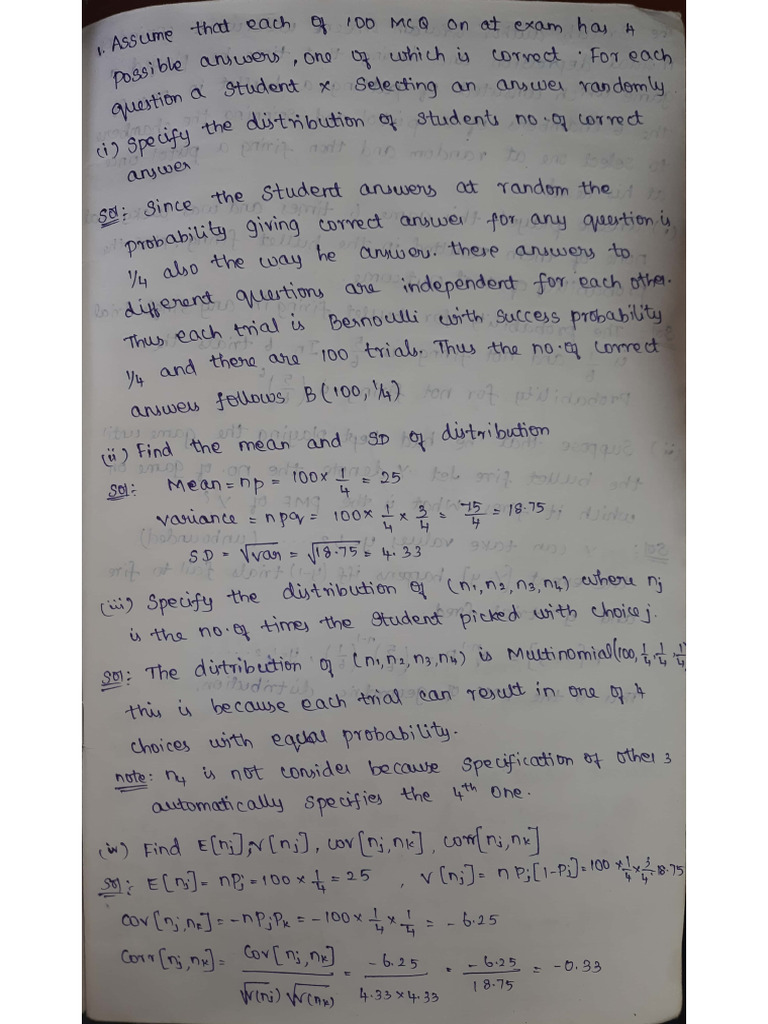 1. Assume that each of 100 MCQ on at exam has 4
possible answers, one of which is correct. For each
question a student x selecting an answer randomly
(i) Specify the distribution of students no. of correct
answer
Sol: Since the student answers at random the
probability giving correct answer for any question is
1/4 also the way he answer. there answers to
different questions are independent for each other.
Thus each trial is Bernoulli with success probability
1/4 and there are 100 trials. Thus the no. of correct
answers follows B(100, 1/4)
(ii) Find the mean and SD of distribution
Sol: Mean = np = 100 × 1/4 = 25
variance = npq = 100 × 1/4 × 3/4 = 75/4 = 18.75
SD = √var = √18.75 = 4.33
(iii) Specify the distribution of (n₁, n₂, n₃, n₄) where nj
is the no. of times the student picked with choice j.
Sol: The distribution of (n₁, n₂, n₃, n₄) is Multinomial(100, 1/4, 1/4, 1/4)
this is because each trial can result in one of 4
choices with equal probability.
note: n₄ is not consider because specification of other 3
automatically specifies the 4th one.
(iv) Find E[nj], V[nj], cov[nj, nk], corr[nj, nk]
Sol: E[nj] = npj = 100 × 1/4 = 25, V[nj] = npj[1-Pj] = 100 × 1/4 × 3/4 = 18.75
Cov[nj, nk] = -nPjPk = -100 × 1/4 × 1/4 = -6.25
Corr[nj, nk] = Cov[nj, nk] / √V(nj) √V(nk) = -6.25 / 4.33 × 4.33 = -6.25 / 18.75 = -0.33